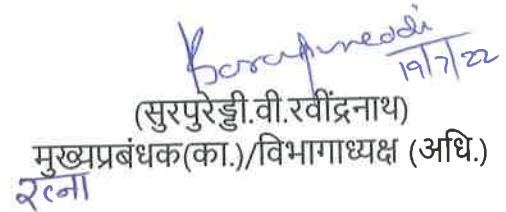 19/7/22
(सुरपुरेड्डी.वी.रवींद्रनाथ)
मुख्यप्रबंधक(का.)/विभागाध्यक्ष (अधि.)
रत्ना